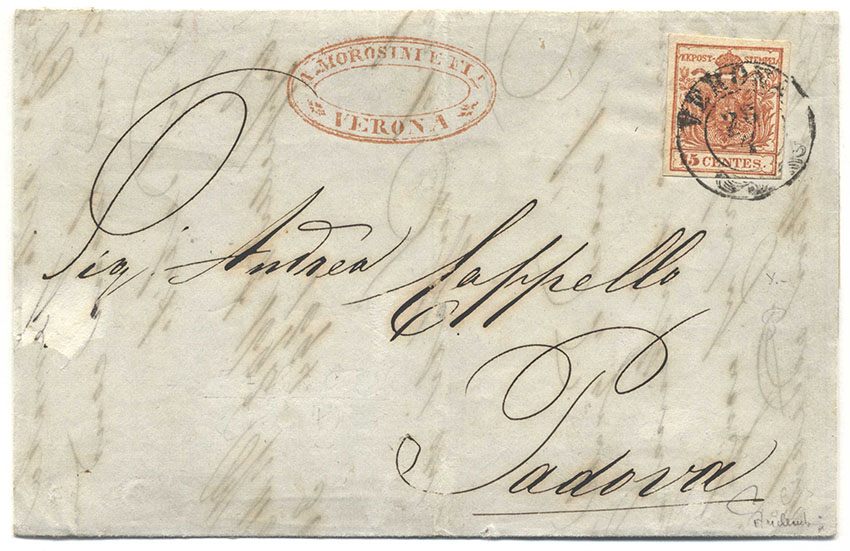 A. MOROSINI E FIL.
VERONA
K.K.POST-STEMPEL
VERONA
15 CENTES.
Sig. Andrea Cappello
Padova